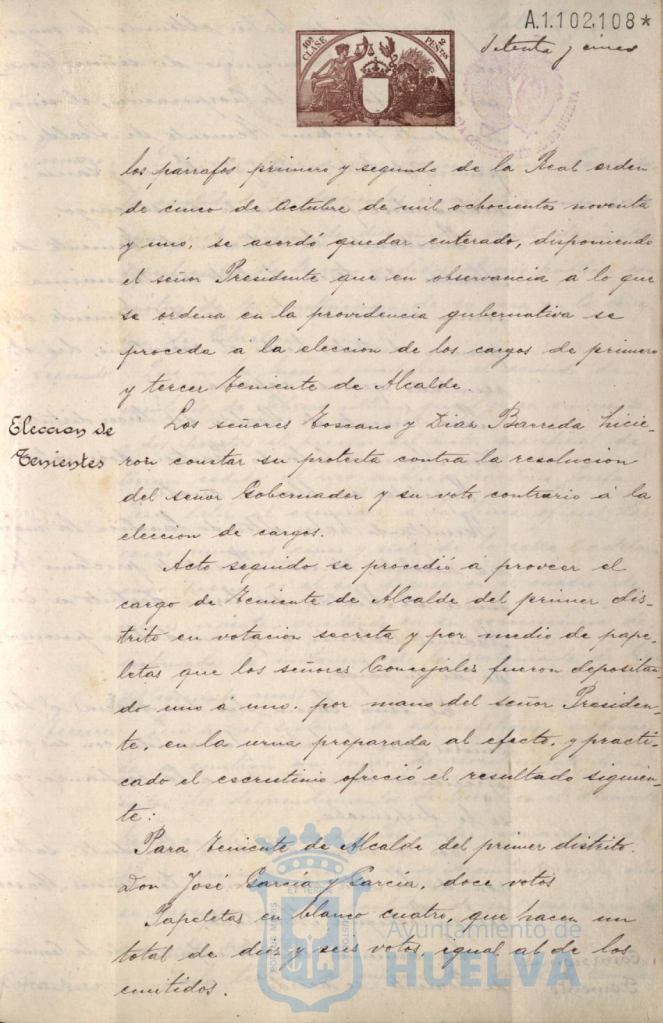 A.1.102,108*
10ª CLASE
2 PESETAS
Setenta y cinco
los párrafos primero y segundo de la Real orden
de cinco de Octubre de mil ochocientos noventa
y uno, se acordó quedar enterado, disponiendo
el señor Presidente que en observancia á lo que
se ordena en la providencia gubernativa se
proceda á la eleccion de los cargos de primero
y tercer Teniente de Alcalde.
Eleccion de
Tenientes
Los señores Toscano y Diaz Barreda hicie-
ron constar su protesta contra la resolucion
del señor Gobernador y su voto contrario á la
eleccion de cargos.
Acto seguido se procedió á proveer el
cargo de Teniente de Alcalde del primer dis-
trito en votacion secreta y por medio de pape-
letas que los señores Concejales fueron depositan-
do uno á uno, por mano del señor Presiden-
te, en la urna preparada al efecto, y practi-
cado el escrutinio ofreció el resultado siguien-
te:
Para Teniente de Alcalde del primer distrito.
Don José García y García, doce votos
Papeletas en blanco cuatro, que hacen un
total de diez y seis votos, igual al de los
emitidos.
Ayuntamiento de
HUELVA